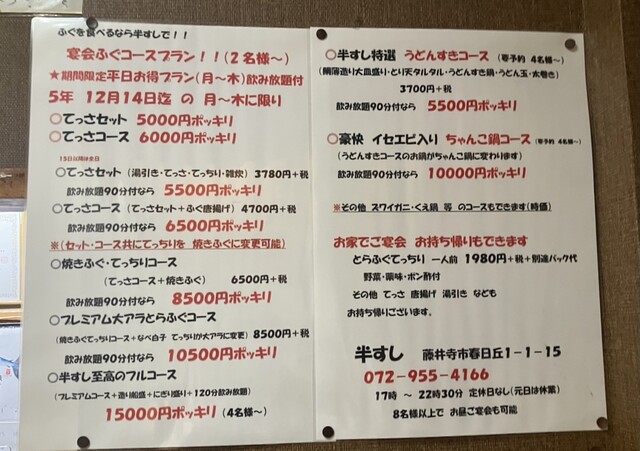 ふぐを食べるなら半すしで！！
宴会ふぐコースプラン！！(２名様～)
★期間限定平日お得プラン(月～木)飲み放題付
5年 12月14日迄 の 月～木に限り
○てっさセット 5000円ポッキリ
○てっさコース 6000円ポッキリ
15日以降は全日
○てっさセット (湯引き・てっさ・てっちり・雑炊) 3780円+税
飲み放題90分付なら 5500円ポッキリ
○てっさコース (てっさセット+ふぐ唐揚げ) 4700円+税
飲み放題90分付なら 6500円ポッキリ
※(セット・コース共にてっちりを 焼きふぐに変更可能)
○焼きふぐ・てっちりコース
(てっさコース+焼きふぐ) 6500円+税
飲み放題90分付なら 8500円ポッキリ
○プレミアム大アラとらふぐコース
(焼きふぐてっちりコース+なべ白子 てっちりが大アラに変更) 8500円+税
飲み放題90分付なら 10500円ポッキリ
○半すし至高のフルコース
(プレミアムコース+造り船盛+にぎり盛り+120分飲み放題)
15000円ポッキリ (4名様～)
○半すし特選 うどんすきコース (要予約 4名様～)
(鯛薄造り大皿盛り・とり天タルタル・うどんすき鍋・うどん玉・太巻き)
3700円+税
飲み放題90分付なら 5500円ポッキリ
○豪快 イセエビ入り ちゃんこ鍋コース (要予約 4名様～)
(うどんすきコースのお鍋がちゃんこ鍋に変わります)
飲み放題90分付なら 10000円ポッキリ
※その他 スワイガニ・くえ鍋 等 のコースもできます(時価)
お家でご宴会 お持ち帰りもできます
とらふぐてっちり 一人前 1980円+税+別途パック代
野菜・薬味・ポン酢付
その他 てっさ 唐揚げ 湯引き なども
お持ち帰りございます。
半すし 藤井寺市春日丘１－１－１５
072-955-4166
17時 ～ 22時30分 定休日なし(元日は休業)
8名様以上で お昼ご宴会も可能